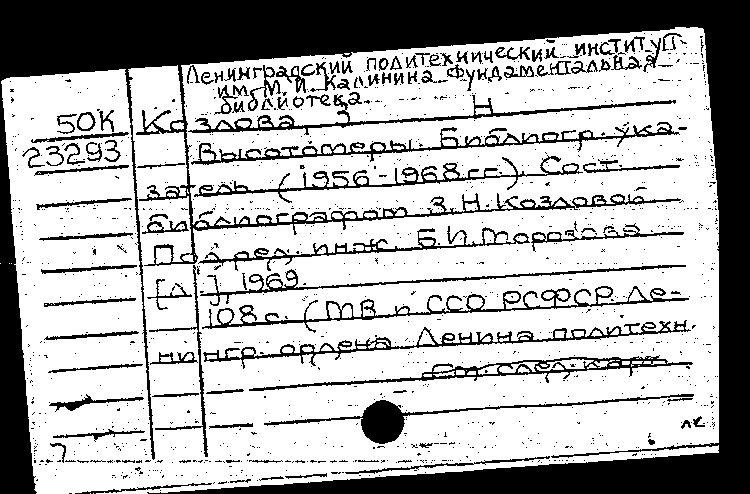 Ленинградский политехнический институт
им. М. И. Калинина Фундаментальная
библиотека.
50К Козлова, З Н
23293 Высотомеры. Библиогр. ука-
затель (1956-1968 гг.). Сост.
библиографом З.Н. Козловой
Под ред. инж. Б.И. Морозова
[Л.], 1969.
108 с. (МВ и ССО РСФСР. Ле-
нингр. ордена Ленина политехн.
См. след. карт.